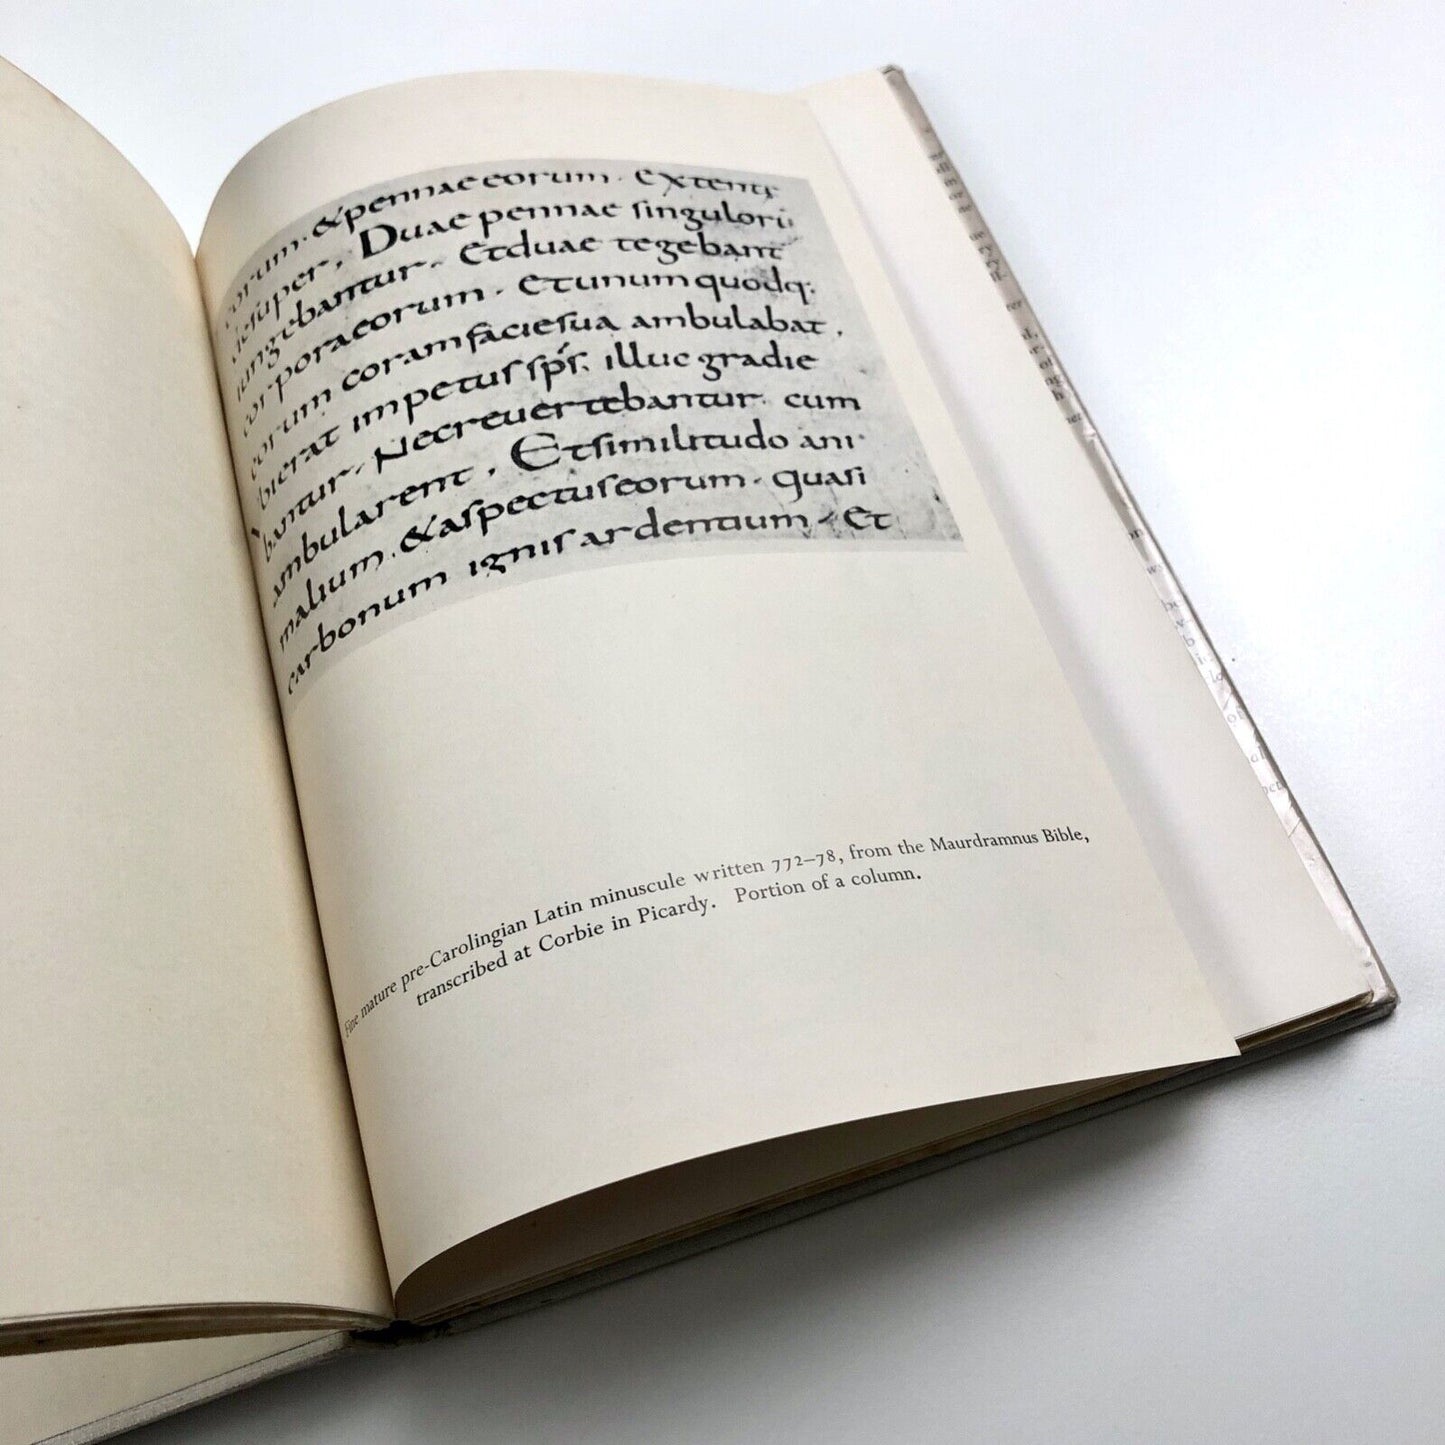 eorum. & pennae eorum. extente
desuper. Duae pennae singuloru
iungebantur. Et duae tegebant
corpora eorum. et unum quodq:
eorum coram facie sua ambulabat.
ubi erat impetus sps. illuc gradie
bantur. Nec reuertebantur. cum
ambularent. Et similitudo ani
malium. & aspectus eorum. quasi
carbonum ignis ardentium. Et
Fine mature pre-Carolingian Latin minuscule written 772–78, from the Maurdramnus Bible,
transcribed at Corbie in Picardy. Portion of a column.